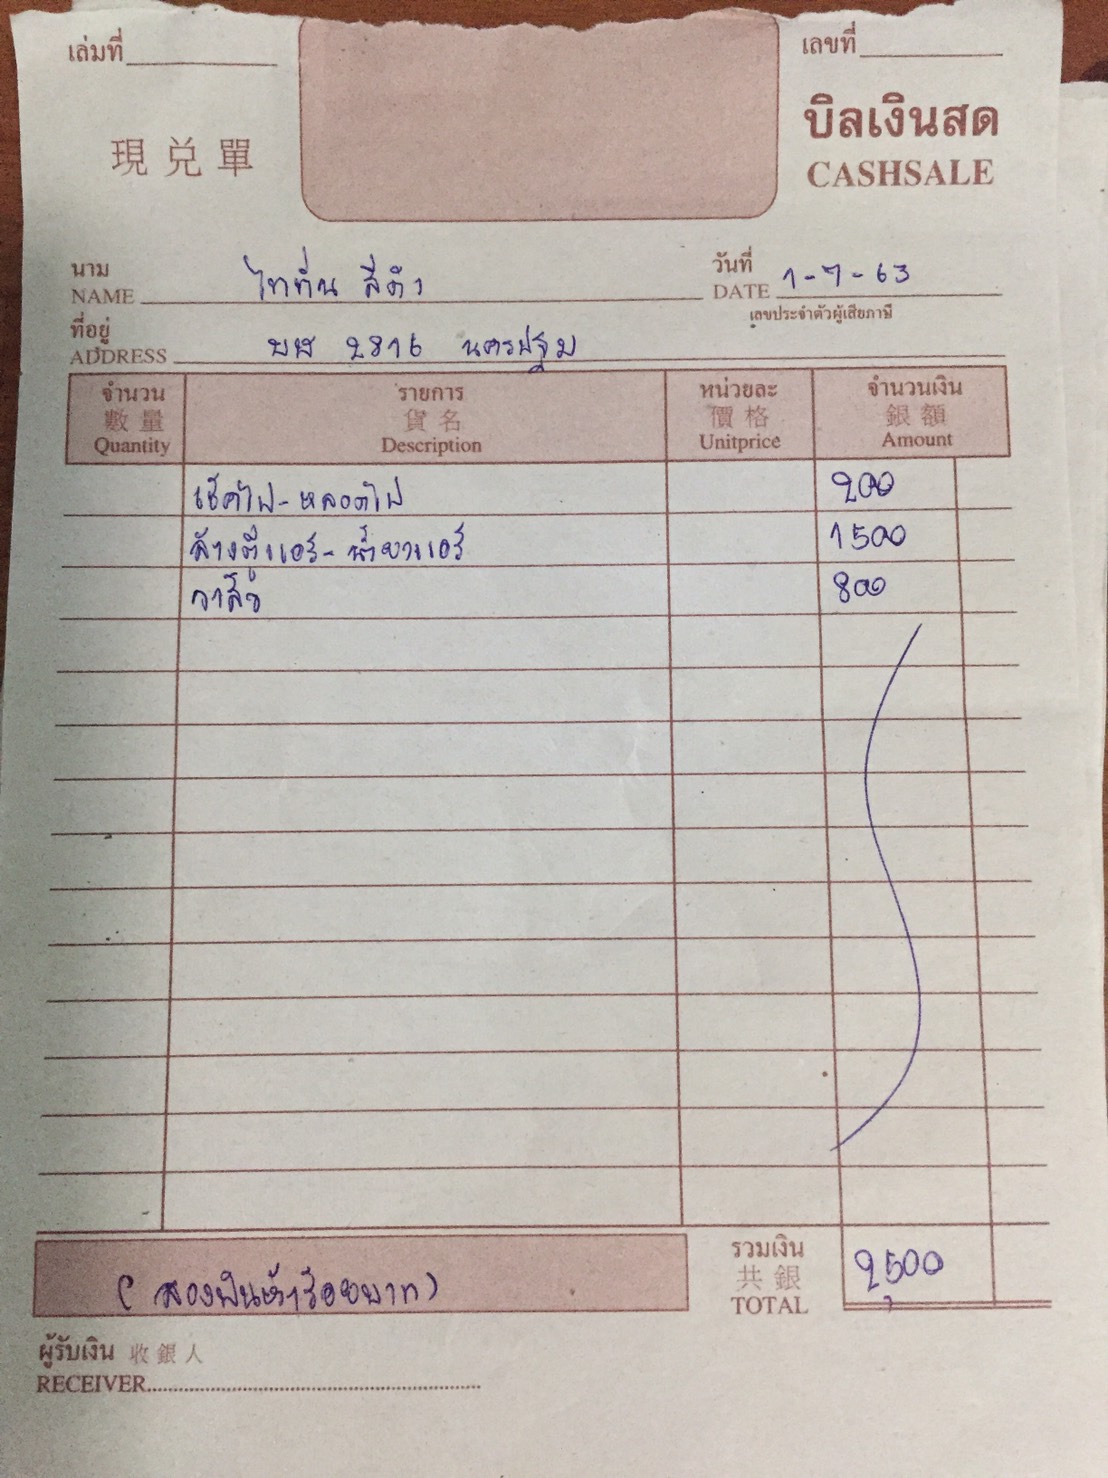 เล่มที่ เลขที่
現兑單 บิลเงินสด
CASHSALE
นาม ไททั่น สีดำ วันที่ 1-7-63
NAME DATE
เลขประจำตัวผู้เสียภาษี
ที่อยู่ บฬ 2816 นครปฐม
ADDRESS
จำนวน รายการ หน่วยละ จำนวนเงิน
數量 貨名 價格 銀額
Quantity Description Unitprice Amount
เช็คไฟ-หลอดไฟ 200
ล้างตู้แอร์-น้ำยาแอร์ 1500
วาล์ว 800
(สองพันห้าร้อยบาท) รวมเงิน 2,500
共銀
TOTAL
ผู้รับเงิน 收銀人
RECEIVER